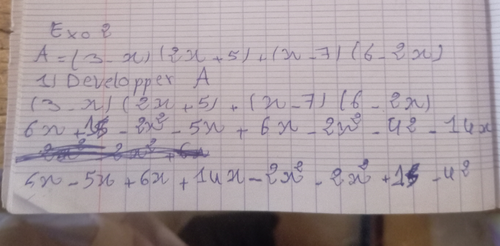 Exo 2
A = (3 - x) (2x + 5) + (x - 7) (6 - 2x)
1) Developper A
(3 - x) (2x + 5) + (x - 7) (6 - 2x)
6x + 15 - 2x² - 5x + 6x - 2x² - 42 - 14x
2x² 2x² + 6x
6x - 5x + 6x + 14x - 2x² - 2x² + 15 - 42